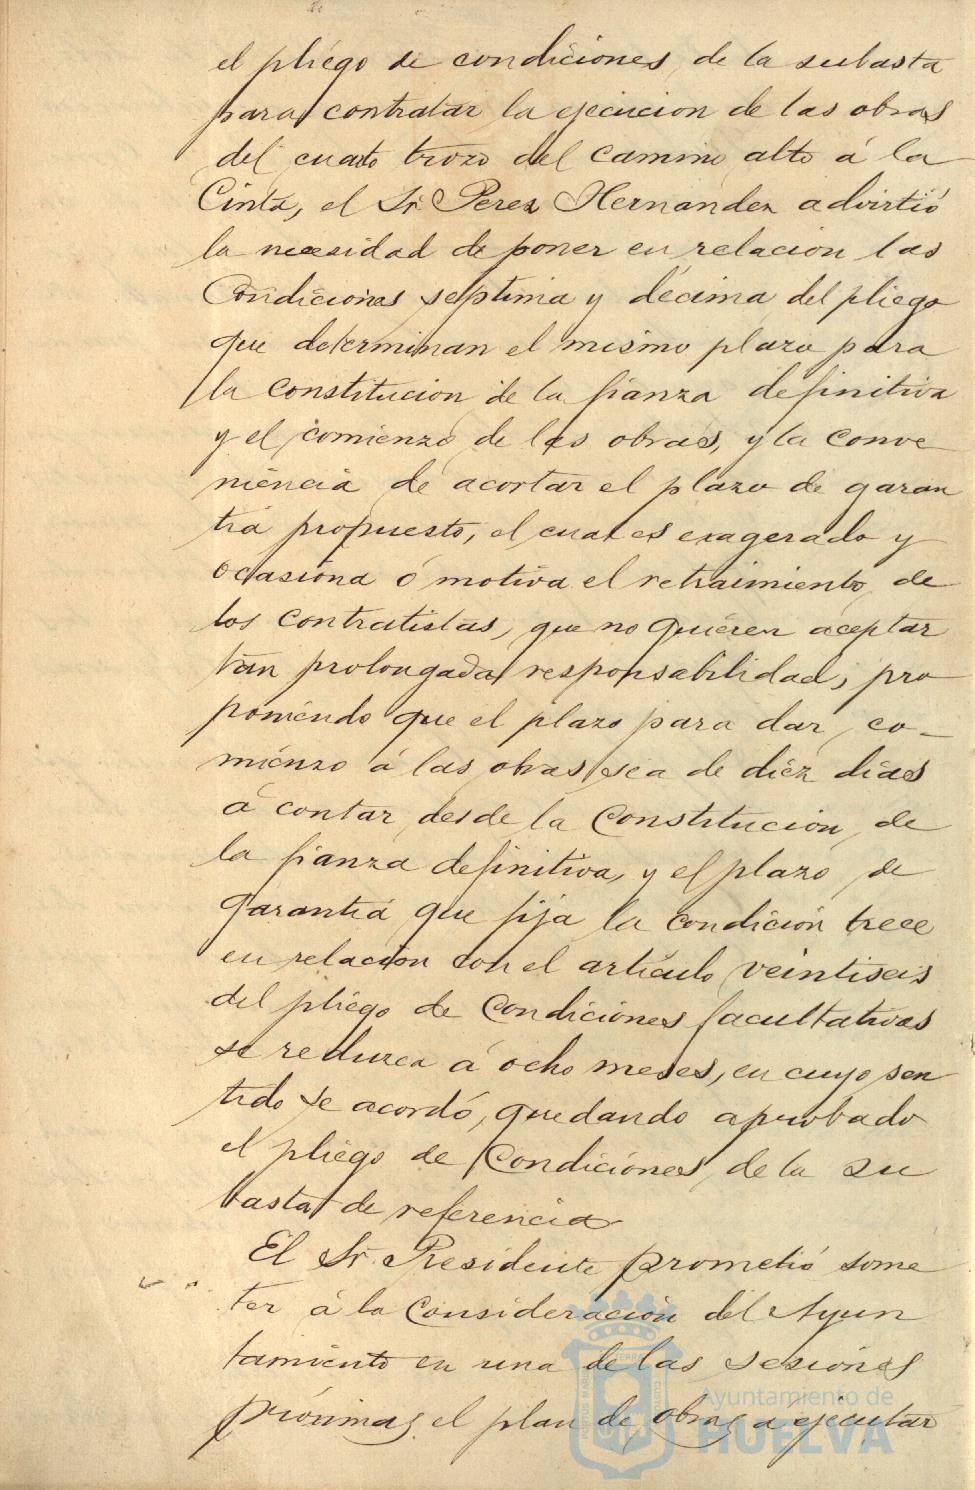 el pliego de condiciones de la subasta
para contratar la ejecucion de las obras
del cuarto trozo del camino alto á la
Cinta, el Sr. Perez Hernandez advirtió
la necesidad de poner en relacion las
Condiciones septima y décima del pliego
que determinan el mismo plazo para
la constitucion de la fianza definitiva
y el comienzo de las obras, y la conve
niencia de acortar el plazo de garan
tia propuesto, el cual es exagerado y
ocasiona ó motiva el retraimiento de
los contratistas, que no quieren aceptar
tan prolongada responsabilidad; pro
poniendo que el plazo para dar co-
mienzo á las obras sea de diez dias
á contar desde la Constitucion de
la fianza definitiva, y el plazo de
garantia que fija la condición trece
en relacion con el artículo veintiseis
del pliego de Condiciones facultativas
se reduzca á ocho meses, en cuyo sen
tido se acordó, quedando aprobado
el pliego de Condiciones de la su
basta de referencia
El Sr. Presidente prometió some
ter á la consideración del Ayun
tamiento en una de las sesiones
próximas el plan de obras a ejecutar
Ayuntamiento de
HUELVA